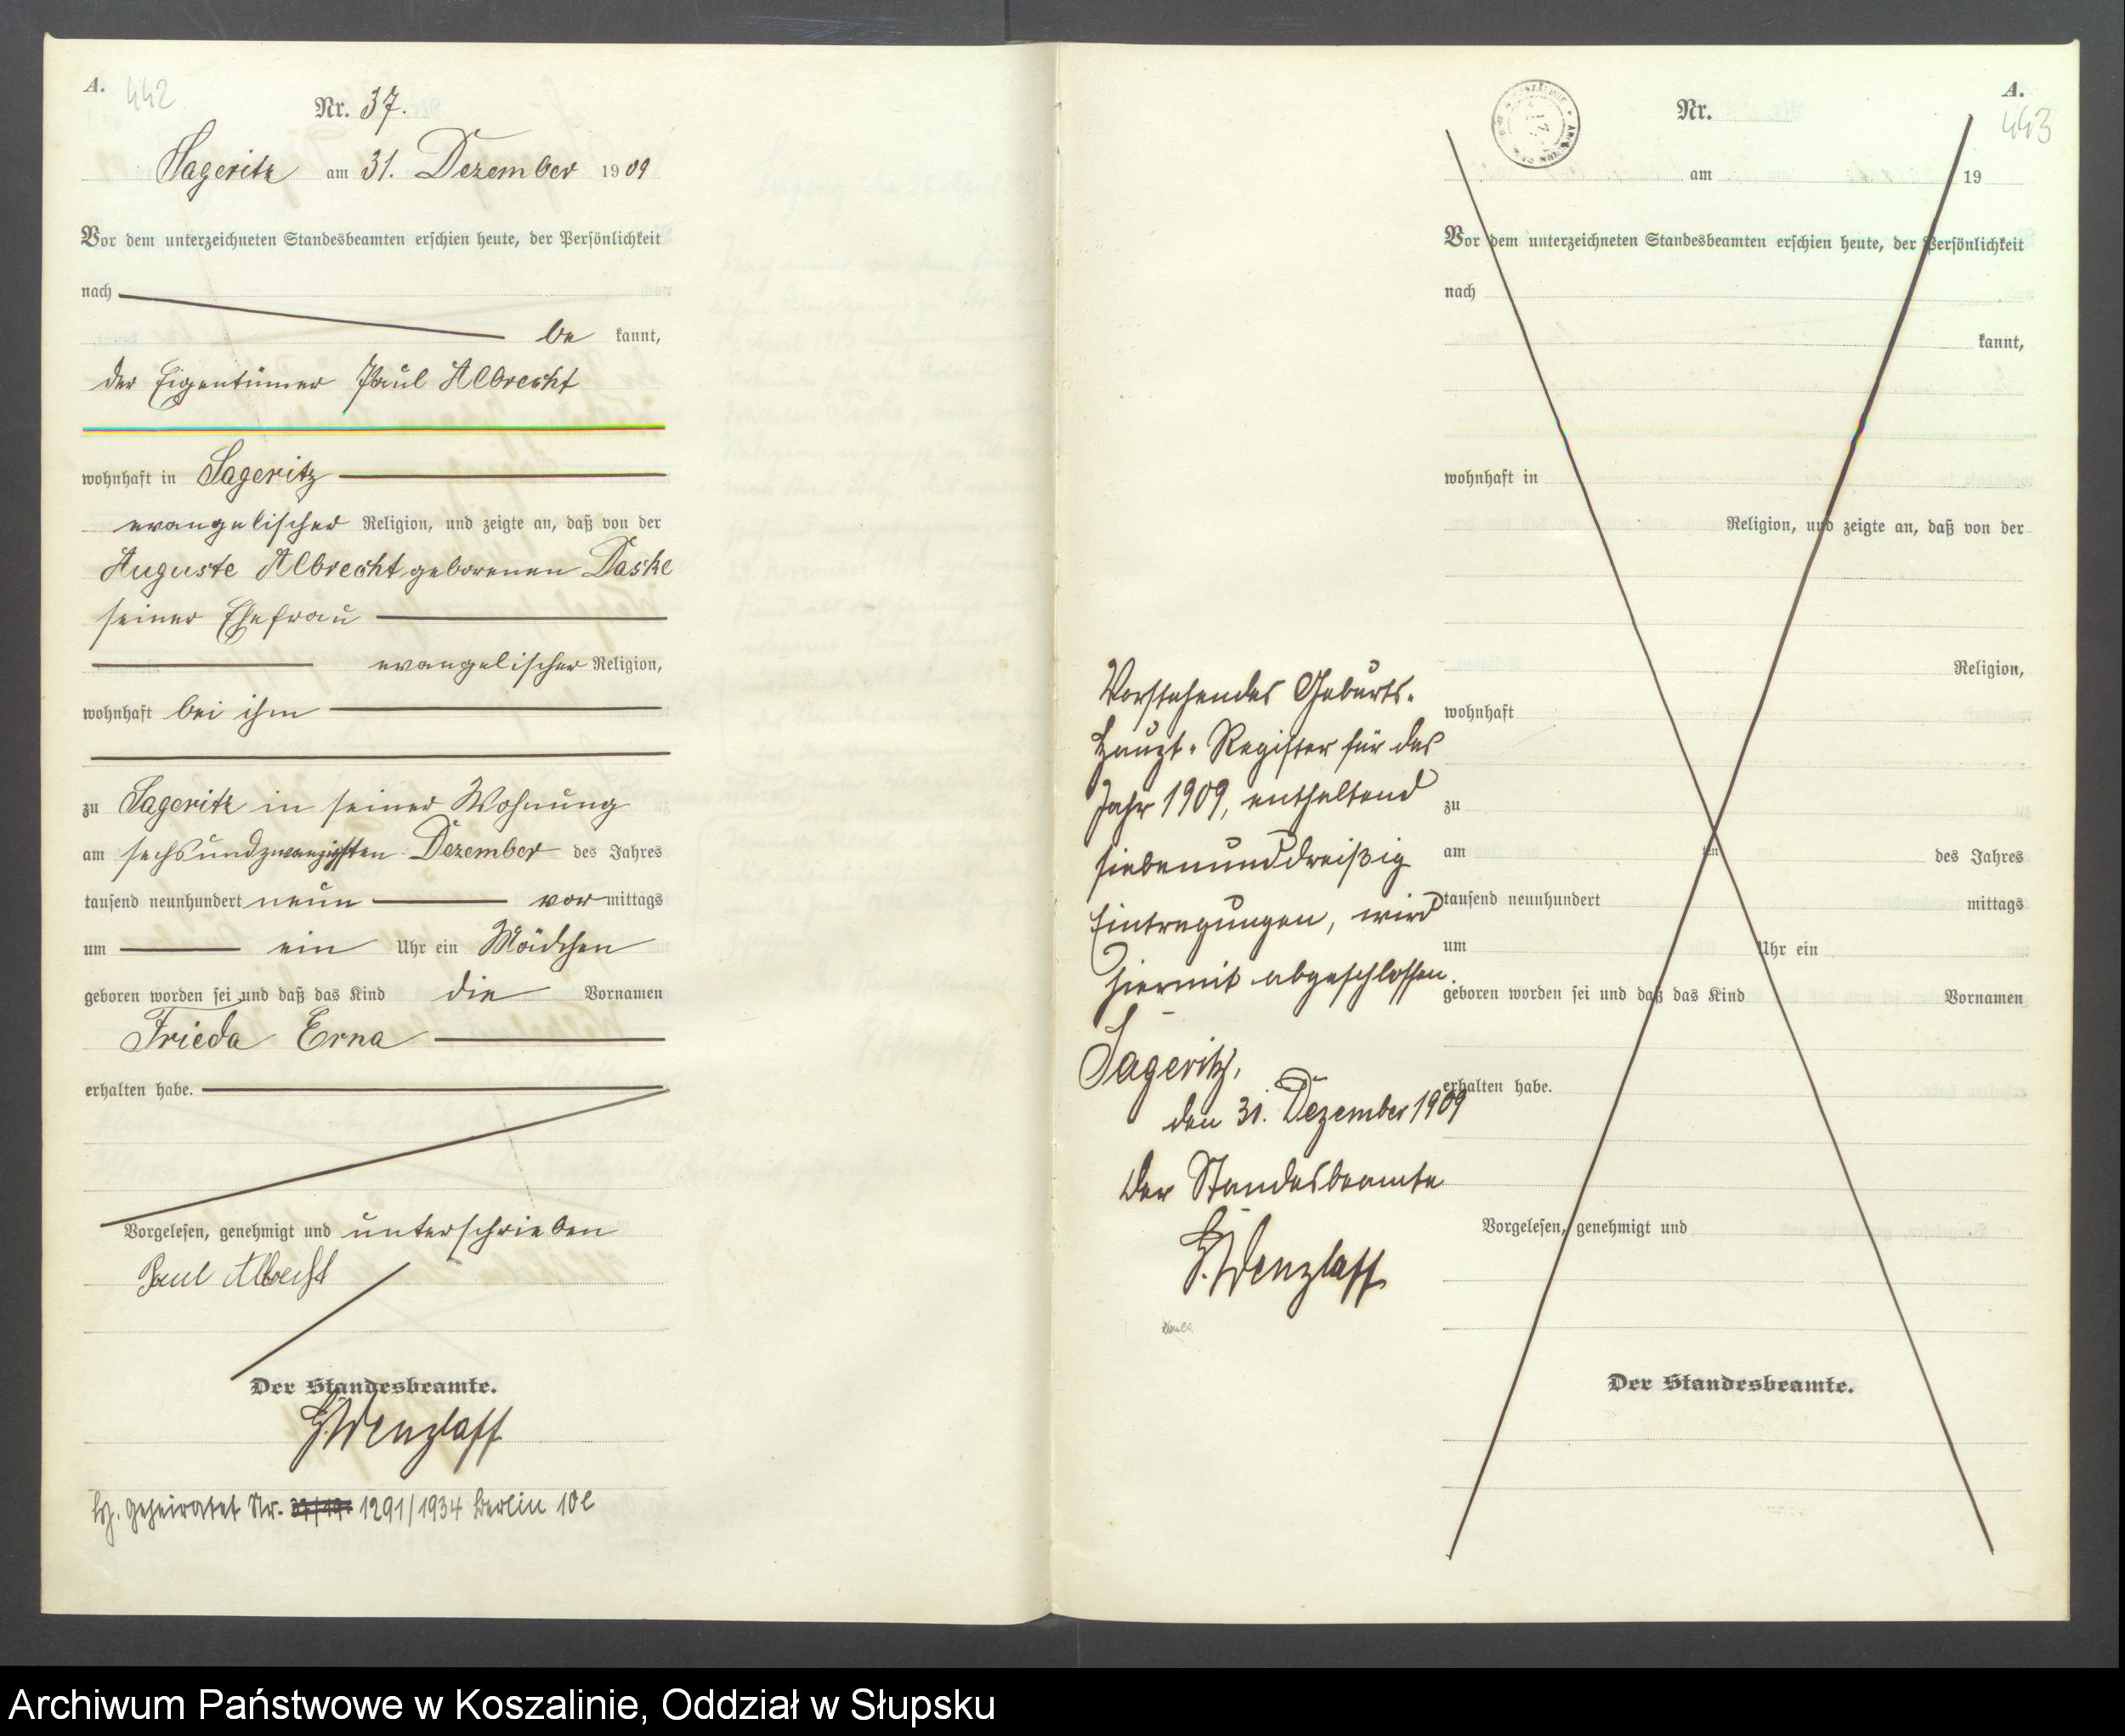 A.
442
Nr. 37.
Sageritz am 31. Dezember 1909
Vor dem unterzeichneten Standesbeamten erschien heute, der Persönlichkeit
nach
be kannt,
der Eigentümer Paul Albrecht
wohnhaft in Sageritz
evangelischer Religion, und zeigte an, daß von der
Auguste Albrecht geborenen Daske
seiner Ehefrau
evangelischer Religion,
wohnhaft bei ihm
zu Sageritz in seiner Wohnung
am sechsundzwanzigsten Dezember des Jahres
tausend neunhundert neun vor mittags
um ein Uhr ein Mädchen
geboren worden sei und daß das Kind die Vornamen
Frieda Erna
erhalten habe.
Vorgelesen, genehmigt und unterschrieben
Paul Albrecht
Der Standesbeamte.
H. Wenzlaff
geheiratet Nr. 1291/1934 Berlin 10
A.
443
Nr.
am 19
Vor dem unterzeichneten Standesbeamten erschien heute, der Persönlichkeit
nach
kannt,
wohnhaft in
Religion, und zeigte an, daß von der
Religion,
wohnhaft
zu
am ten des Jahres
tausend neunhundert mittags
um Uhr ein
geboren worden sei und daß das Kind Vornamen
erhalten habe.
Vorgelesen, genehmigt und
Der Standesbeamte.
Vorstehendes Geburts-
Haupt-Register für das
Jahr 1909, enthaltend
siebenunddreißig
Eintragungen, wird
hiermit abgeschlossen.
Sageritz,
den 31. Dezember 1909
Der Standesbeamte
H. Wenzlaff
Archiwum Państwowe w Koszalinie, Oddział w Słupsku